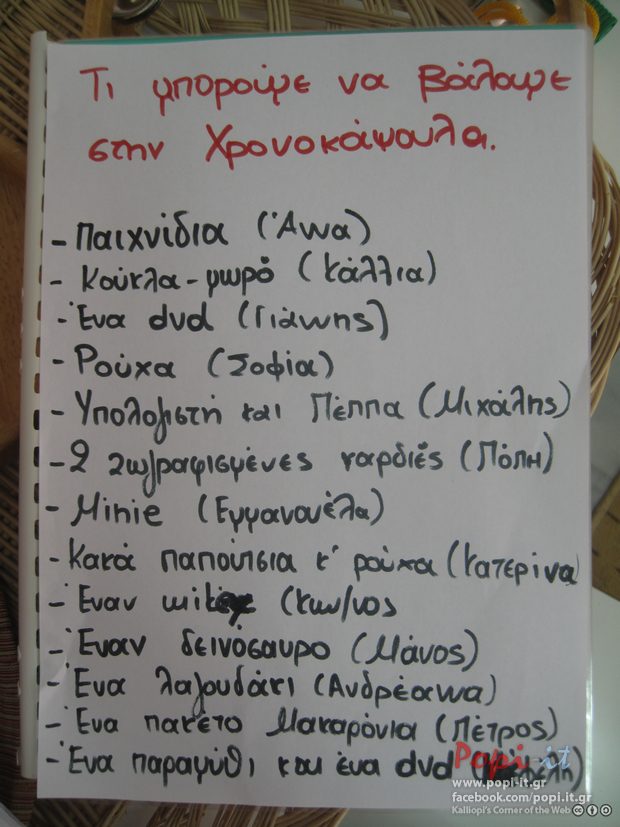 Τι μπορούμε να βάλουμε
στην Χρονοκάψουλα.
- Παιχνίδια (Άννα)
- Κούκλα-μωρό (Κάλλια)
- Ένα dvd (Γιάννης)
- Ρούχα (Σοφία)
- Υπολογιστή και Πέππα (Μιχάλης)
- 2 ζωγραφισμένες καρδιές (Πόπη)
- Minie (Εμμανουέλα)
- Κακά παπούτσια κ' ρούχα (Κατερίνα)
- Έναν (Κων/νος
- Έναν δεινόσαυρο (Μάνος)
- Ένα λαγουδάκι (Ανδρέαννα)
- Ένα πακέτο Μακαρόνια (Πέτρος)
- Ένα παραμύθι και ένα dvd
Popi-it
www.popi-it.gr
facebook.com/popi.it.gr
Kalliopi's Corner of the Web